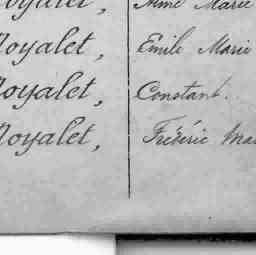 Noyalet, Aimé Marie
Noyalet, Emile Marie
Noyalet, Constant.
Noyalet, Fréderic Mar